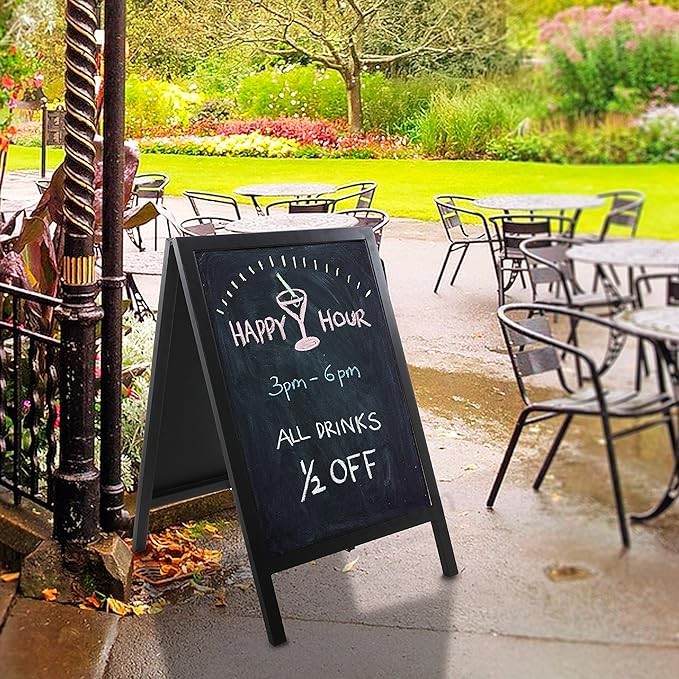 HAPPY HOUR
3pm - 6pm
ALL DRINKS
1/2 OFF